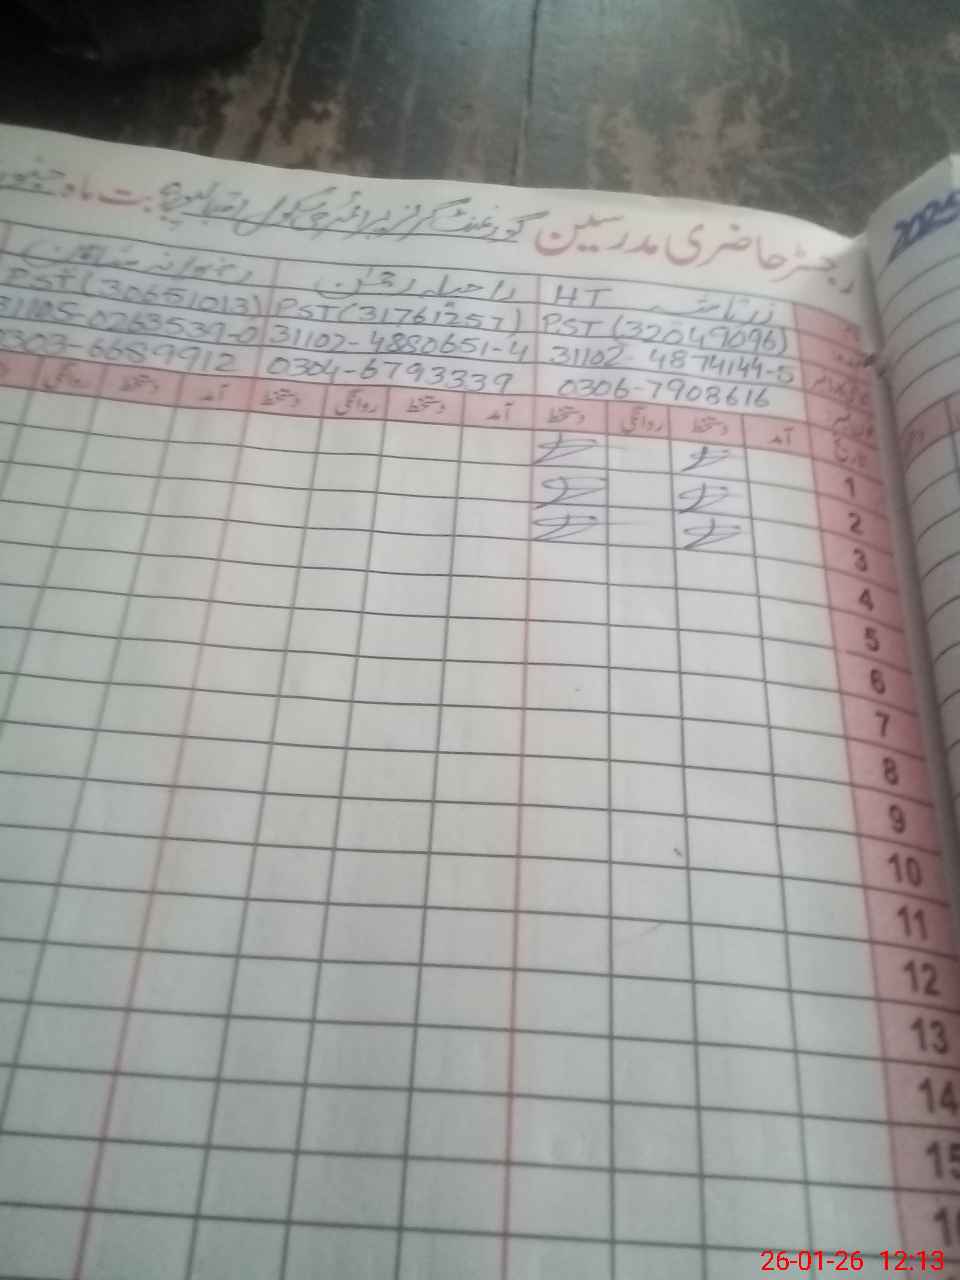 2025
رجسٹر حاضری مدرسین گورنمنٹ گرلز پرائمری سکول بت ماہ
HT راحیلہ رحمٰن
PST (32049096) PST (31761257) PST (30651013)
31102-4874144-5 31102-4880651-4 31105-0263539-0
0306-7908616 0304-6793339 0303-6689912
تاریخ آمد دستخط روانگی دستخط آمد دستخط روانگی دستخط آمد دستخط روانگی
1
2
3
4
5
6
7
8
9
10
11
12
13
14
15
26-01-26 12:13